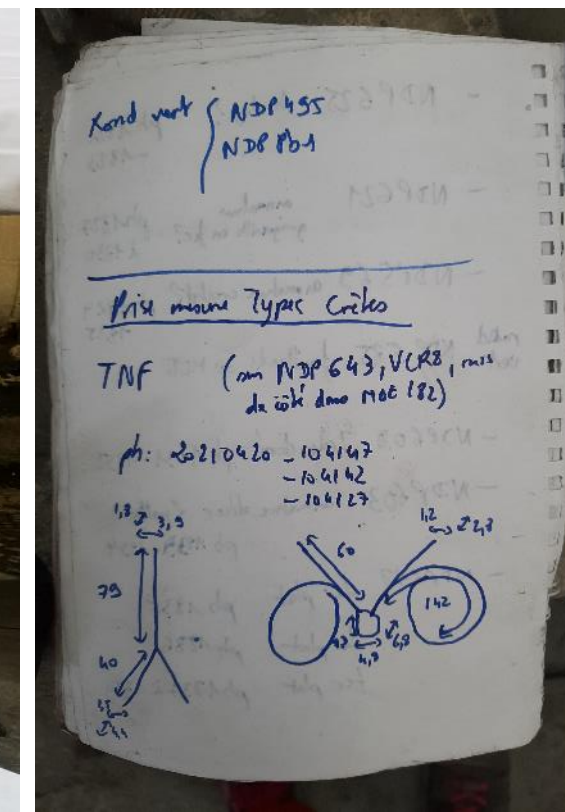 Rond vert { NDP495
NDP8b1
Prise mesure Types Crêtes
TNF (sur NDP643, VCR8, mis
de côté dans MOE 182)
ph: 20210420 - 104147
- 104142
- 104127
1,8 3,9
79
40
60
1,2 2,8
142
4,9 6,8